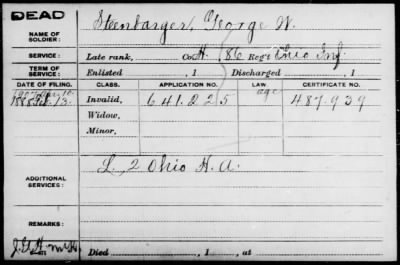 DEAD
NAME OF SOLDIER: Steenbarger, George W.
SERVICE: Late rank, Co. H, 86 Reg't Ohio Inf.
TERM OF SERVICE: Enlisted , 1 Discharged , 1
DATE OF FILING. CLASS. APPLICATION NO. LAW. CERTIFICATE NO.
1888 13. Invalid, 641.225 age 487.939
Widow,
Minor,
ADDITIONAL SERVICES: L, 2 Ohio H. A.
REMARKS:
Died , 1 , at